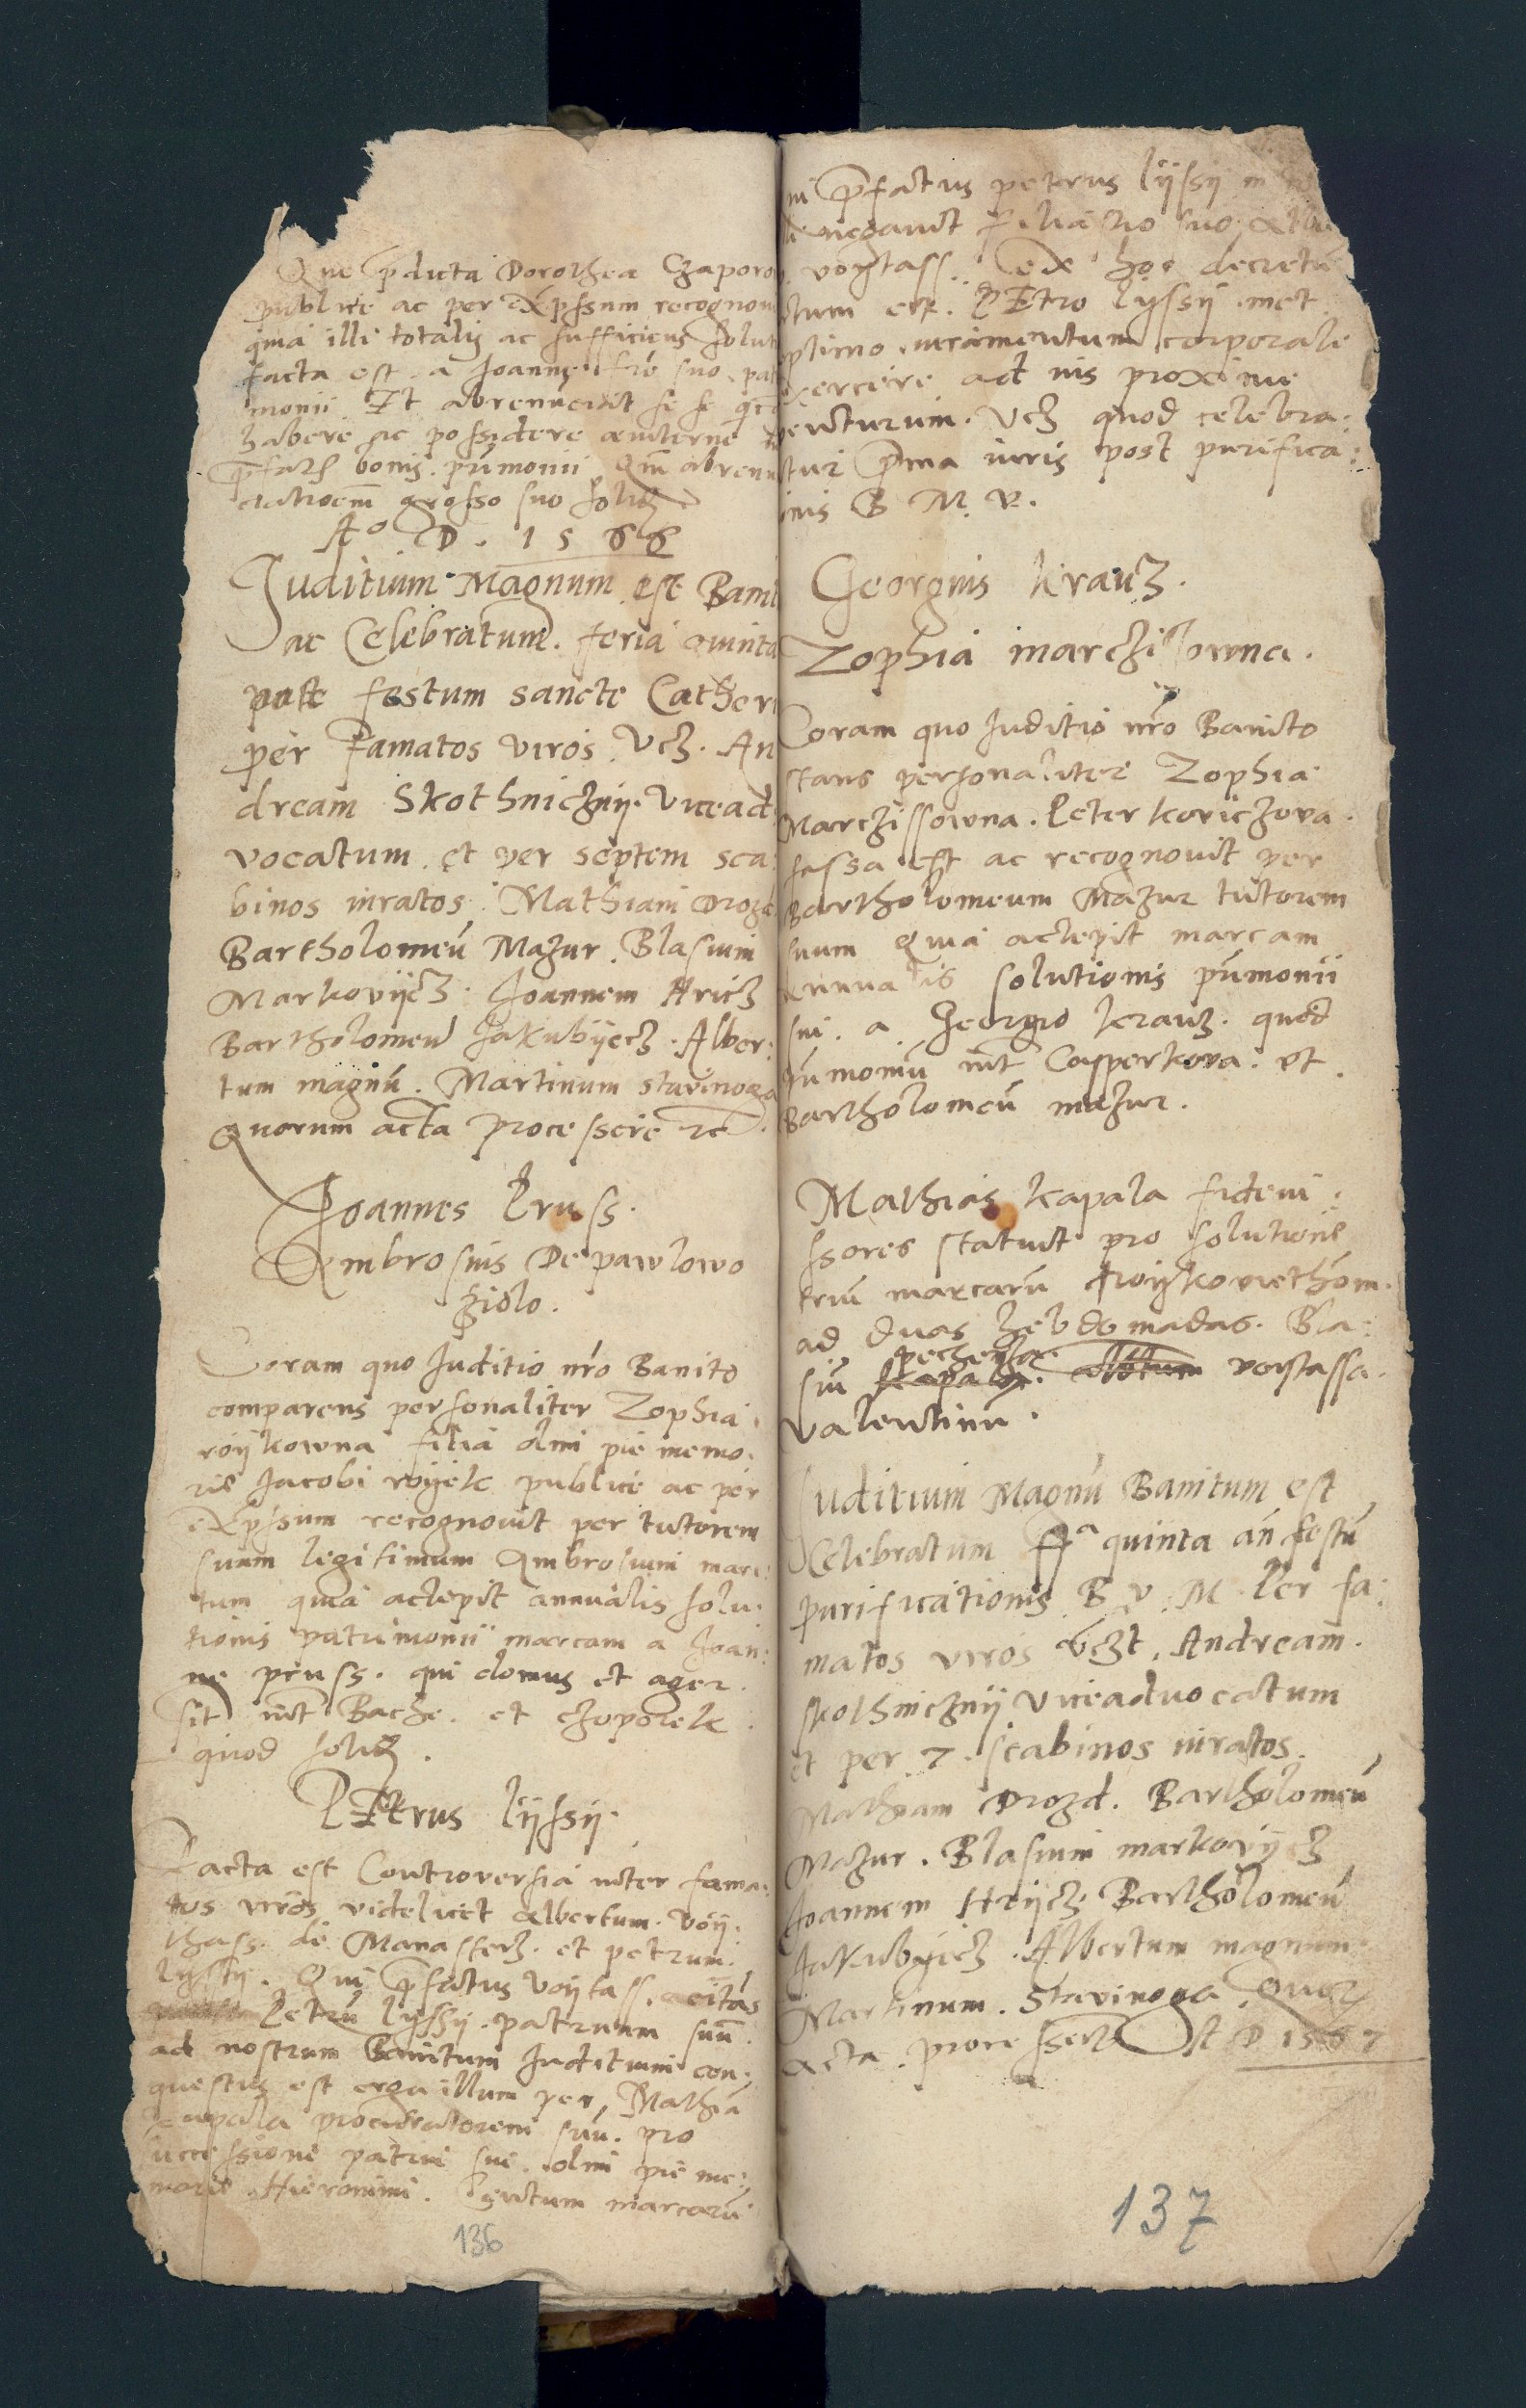 Que p̄dicta Dorothea Czaporo
publice ac per Expssum recognou
quia illi totalis ac sufficiens solut
facta est a Joanne frē suo pat
monii Et abrenuerit se se
habere ac possidere
bonis pūmonii abrenu
grosso suo
Aº D. 1566
Juditium Magnum est Bani
ac Celebratum. feria quinta
post festum sancte Catheri
per Famatos viros Vcz. An
dream Skothnicznÿ Vicead:
vocatum et per septem sca:
binos iuratos: Mathiam Drozd
Bartholomeū Mazur. Blasium
Markovÿcz. Joannem Hricz
Bartholomeū Jakubÿecz. Alber:
tum magnū. Martinum stavinoga
Quorum acta processere
Joannes Pruss.
Ambrosius De pawlowo
Coram quo Juditio nr̄o Banito
comparens personaliter Zophia
roÿkowna filia olim pie memo:
rie Jacobi roÿek publice ac per
Expssum recognouit per tutorem
suum legitimum Ambrosium mari:
tum quia accepit annualis solu:
tionis patrimonii marcam a Joan:
ne pruss. qui domus et ager
sit int̄ Bache et czoporek
quod
PEtrus Lÿssÿ.
Facta est Controversia inter fama:
tos viros videlicet Albertum Voÿ:
thass de Manasterz. et petrum
lyssÿ. Qui p̄fatus Voÿtass
Petrū lyssÿ patruum suū
ad nostrum Banitum Juditium con:
questus est erga illum per Mathiā
kapala procuratorem suū. pro
successione patrui sui olim pie me:
morie Hieronimi. Centum marcarū
136
p̄fatus petrus lÿssÿ
negauit filiastro suo Albe
voytass. ex hoc decretū
est. PEtro lyssÿ met
iuramentum corporale
ad ius proxime
venturum. Vcz quod celebra:
tur p̄ma iuris post purifica:
B M V.
Georgius Krauz.
Zophia marczissowna.
Coram quo Juditio nr̄o Banito
stans personaliter Zophia
Marczissowna. Peter koriczova
fassa est ac recognouit per
Bartholomeum Mazur tutorem
suum quia accepit marcam
annualis solutionis pūmonii
sui a Georgio krauz. quod
pūmoniū int̄ Casperkova et
Bartholomeū mazur.
Mathias kapala fideiu:
ssores statuit pro solutione
triū marcarū
ad duas hebdomadas. Bla:
siū
Valentinū.
Juditium Magnū Banitum est
Celebratum quinta an̄ festū
purificationis B V M Per fa:
matos viros vczt. Andream
skothnicznÿ Viceaduocatum
et per 7 scabinos iuratos.
Mathiam Drozd. Bartholomeū
Mazur. Blasium markovÿcz
Joannem Hrÿcz Bartholomeū
Jakubÿecz. Albertum magnum
Martinum. Stavinoga
Acta D 1567
137